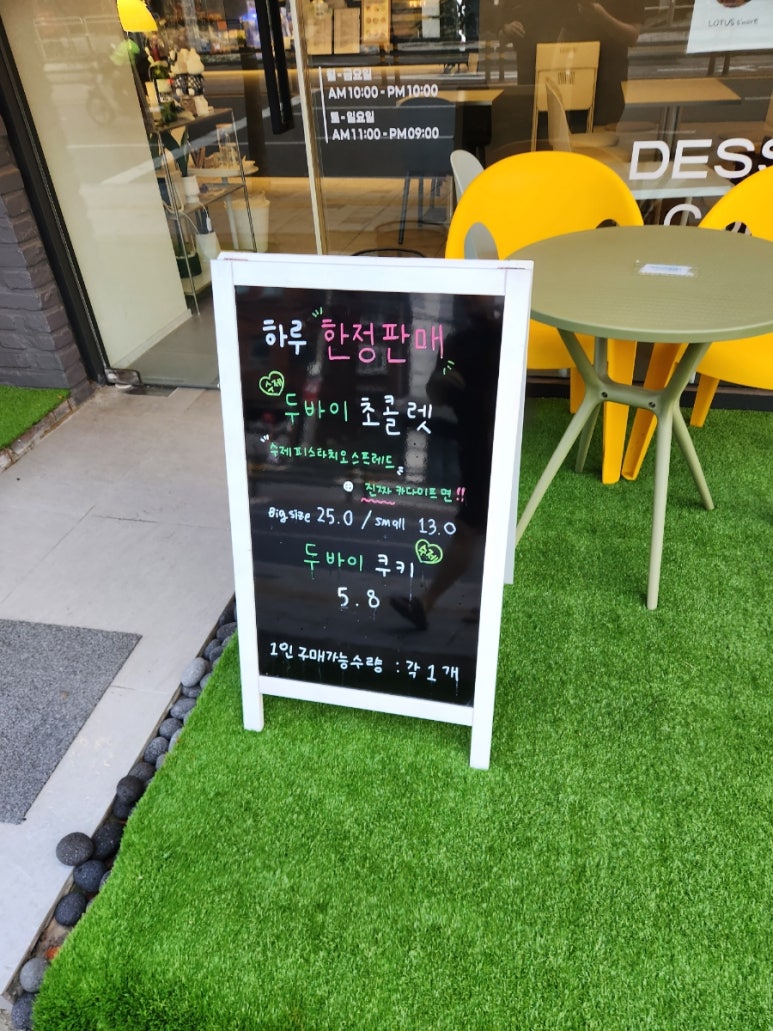 LOTUS
월-금요일
AM 10:00 - PM 10:00
토-일요일
AM 11:00 - PM 09:00
DESS
하루 "한정판매"
수제
두바이 초콜렛
"수제피스타치오스프레드"
진짜 카다이프면!!
Big size 25.0 / small 13.0
두바이 쿠키
수제
5.8
1인 구매가능수량 : 각 1개